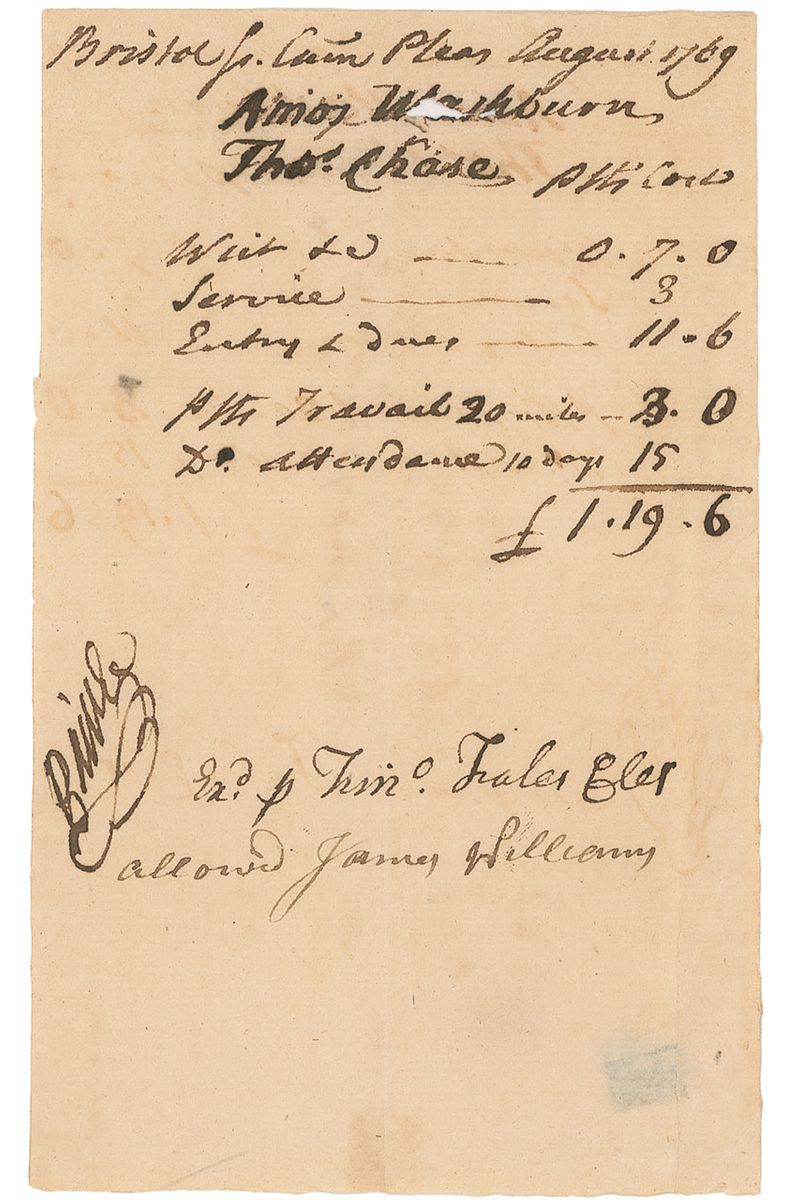 Bristol ss. Com̄ Pleas August 1769
Amos Washburn
Thos. Chase Plfs Cost
Writ &c 0.7.0
Service 3
Entry & dues 11.6
Plfs Travail 20 miles 3.0
Do. Attendance 10 days 15
£ 1.19.6
Exd. p Timo. Fales Cler
allowed James Williams